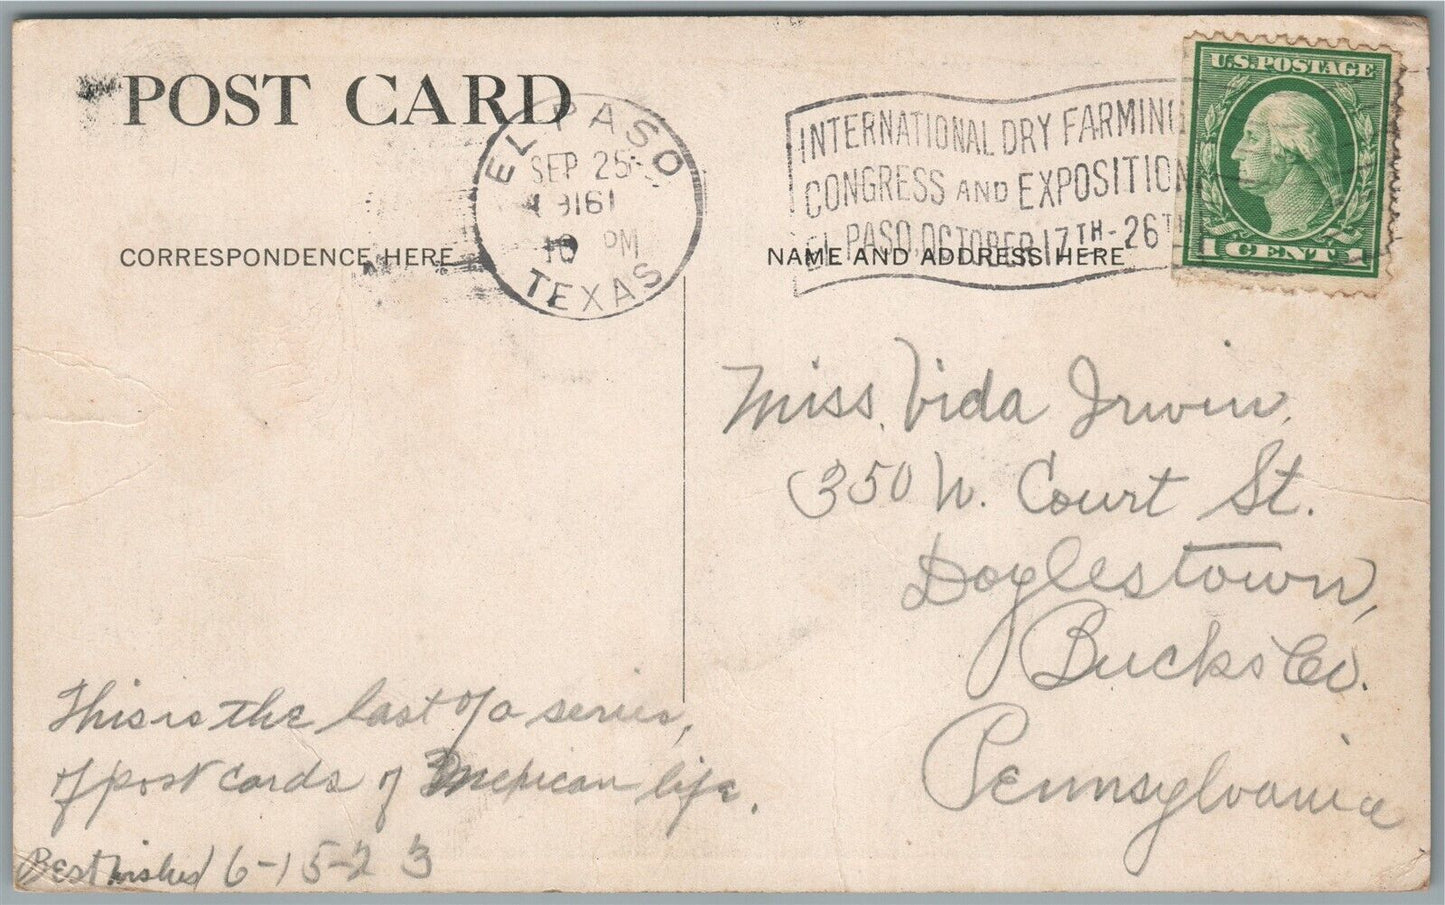 POST CARD
EL PASO
SEP 25
1916
10 PM
TEXAS
INTERNATIONAL DRY FARMING
CONGRESS AND EXPOSITION
EL PASO, OCTOBER 17TH-26TH
U.S. POSTAGE
1 CENT
CORRESPONDENCE HERE
NAME AND ADDRESS HERE
Miss Vida Irwin,
350 W. Court St.
Doylestown,
Bucks Co.
Pennsylvania
This is the last of a series,
of post cards of Mexican life.
Best wishes 6-15-23